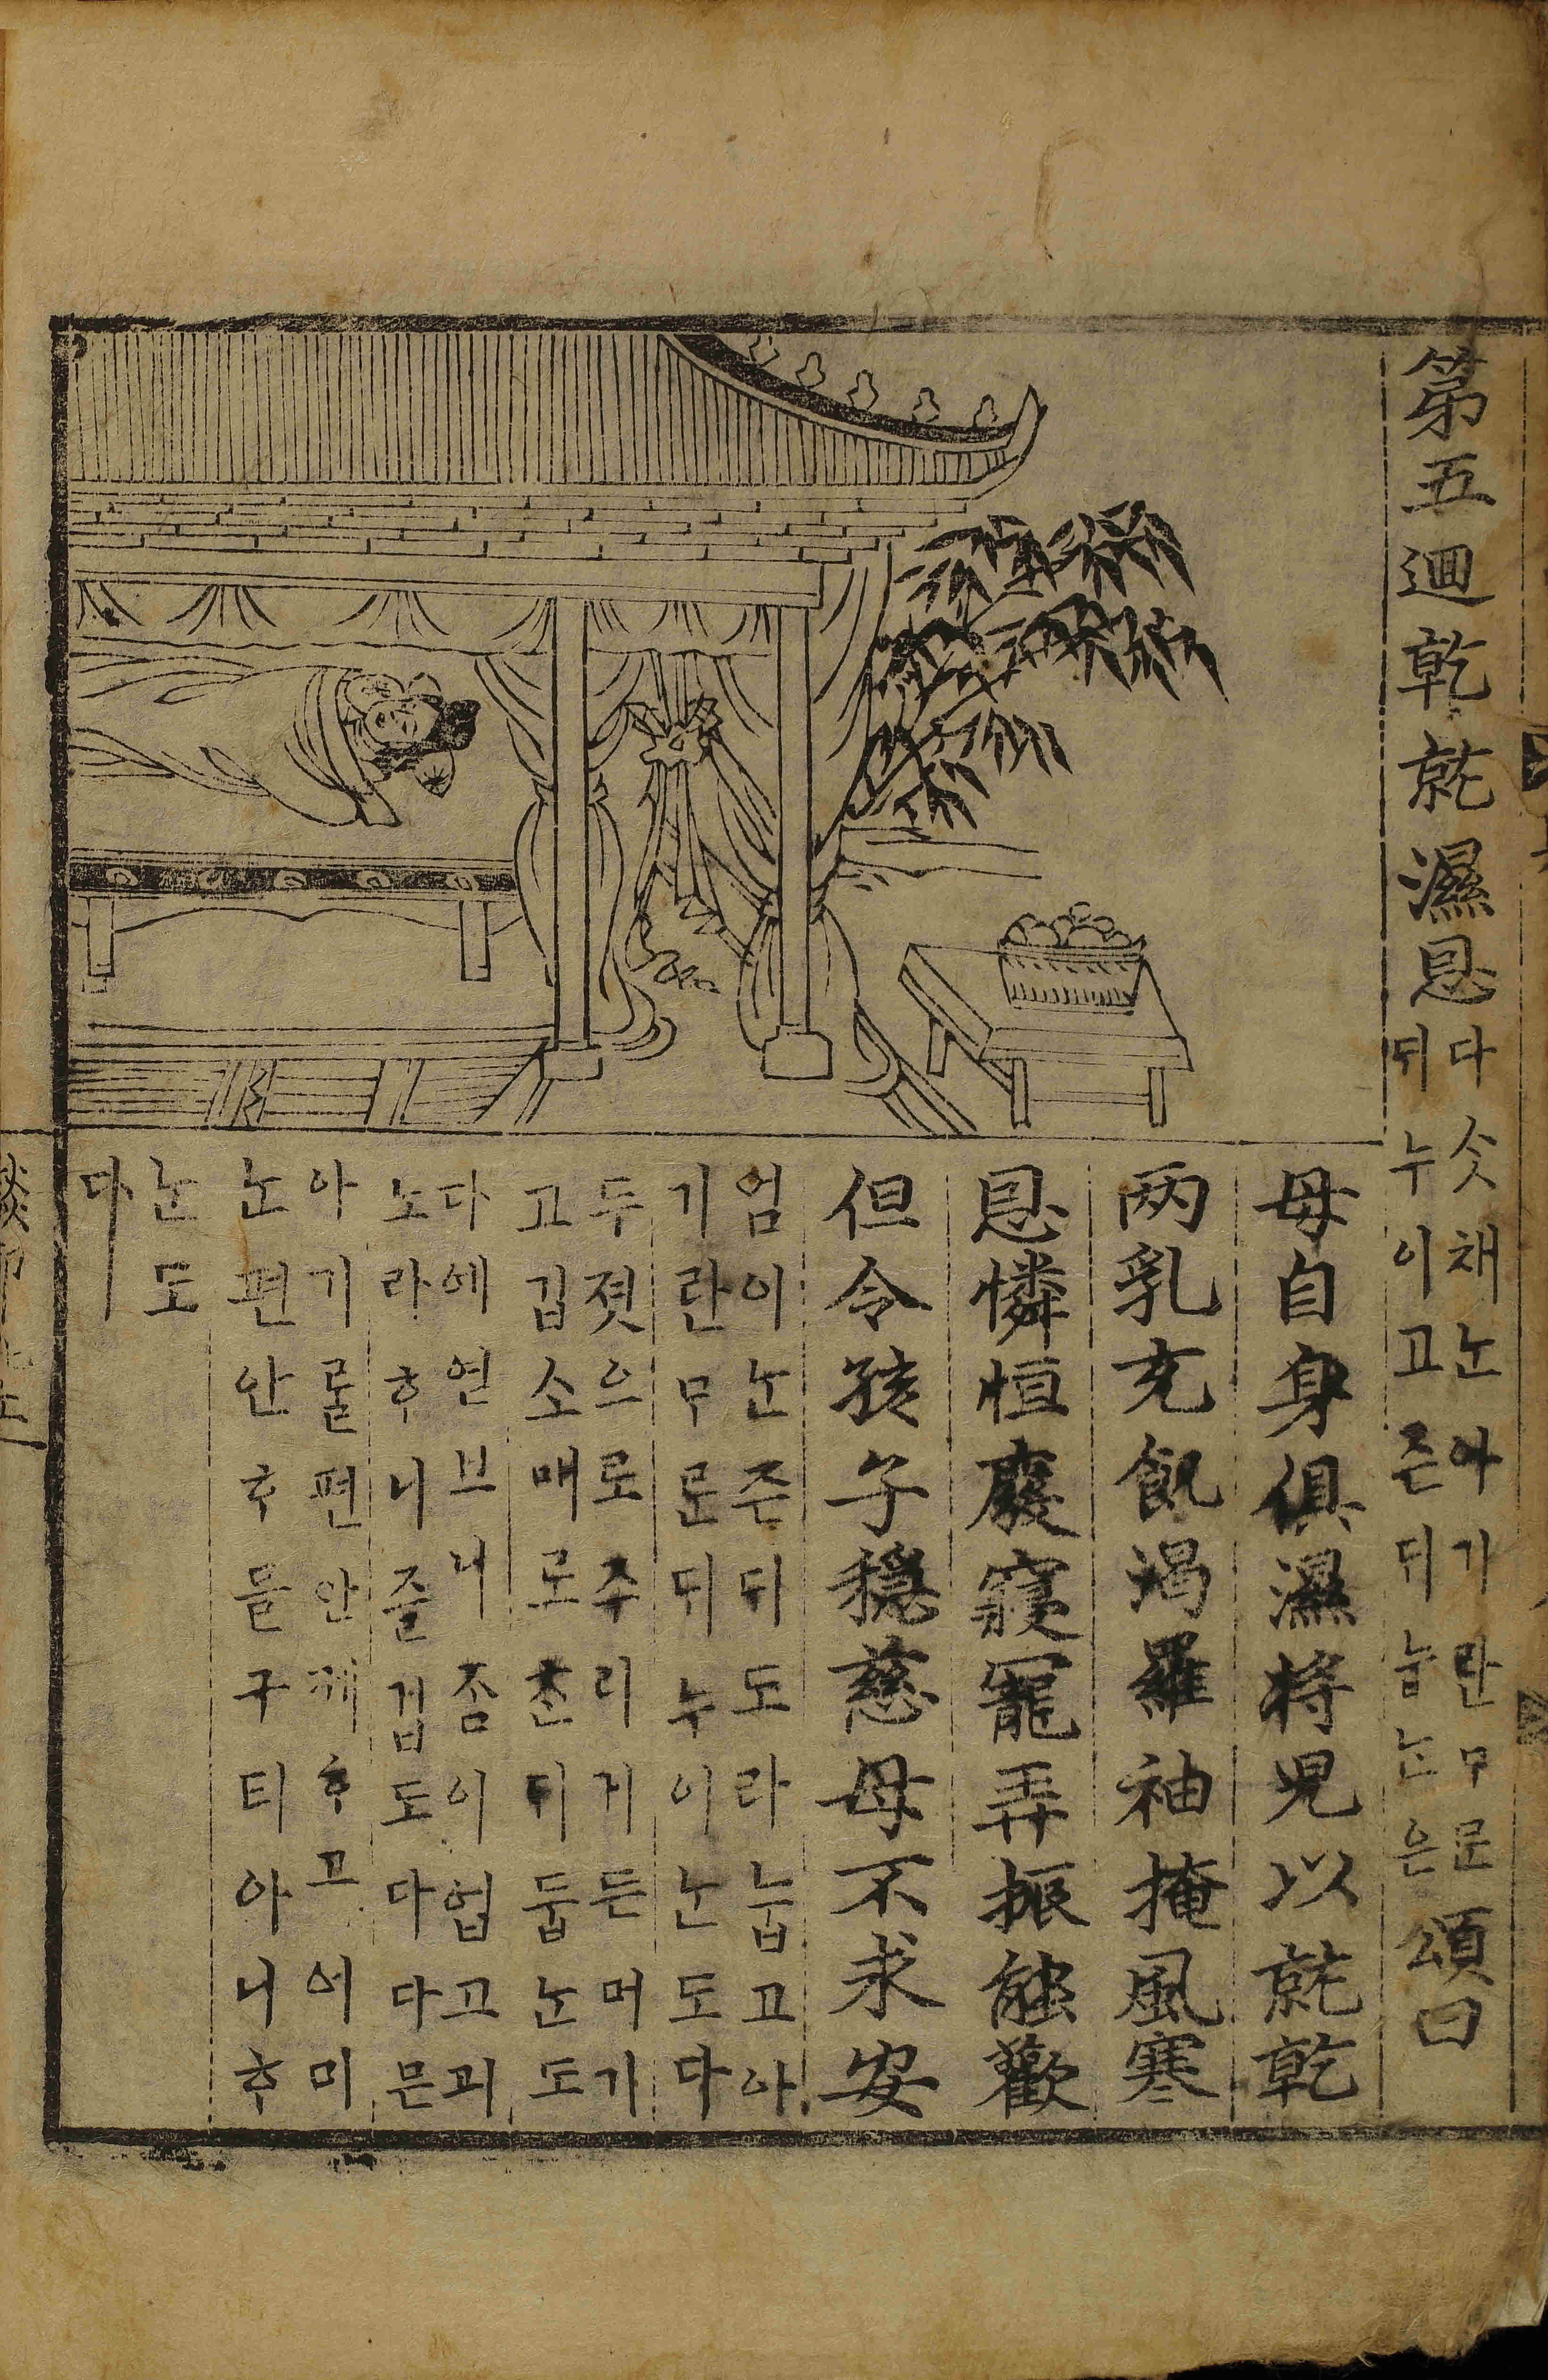 第五迴乾就濕恩
다솟채ᄂᆞᆫ아기란ᄆᆞᄅᆞᆫ
뒤누이고즌뒤눕ᄂᆞᆫ은
頌曰
母自身俱濕將兒以就乾
两乳充飢渴羅袖掩風寒
恩憐恒廢寢寵弄振能歡
但令孩子穩慈母不求安
엄이ᄂᆞᆫ즌뒤도라눕고아
기란ᄆᆞᄅᆞᆫ뒤누이ᄂᆞᆫ도다
두졋으로주리기든머기
고깁소매로ᄎᆞᆫ뒤둡ᄂᆞᆫ도
다에엳브니ᄌᆞᆷ이업고괴
노라ᄒᆞ니즐겁도다다믄
아기ᄅᆞᆯ편안ᄭᅦᄒᆞ고어미
ᄂᆞᆫ편안ᄒᆞ믈구티아니ᄒᆞ
ᄂᆞᆫ도
다